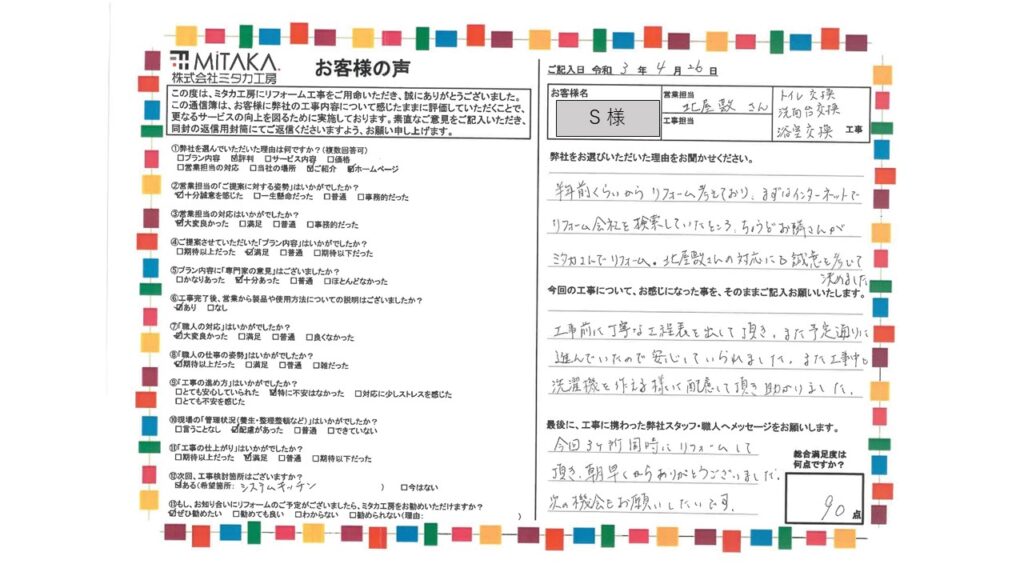 MiTAKA.
株式会社ミタカ工房
お客様の声
この度は、ミタカ工房にリフォーム工事をご用命いただき、誠にありがとうございました。
この通信簿は、お客様に弊社の工事内容について感じたままに評価していただくことで、
更なるサービスの向上を図るために実施しております。素直なご意見をご記入いただき、
同封の返信用封筒にてご返信くださいますよう、お願い申し上げます。
①弊社を選んでいただいた理由は何ですか?(複数回答可)
□プラン内容 ☑評判 □サービス内容 □価格
□営業担当の対応 □当社の場所 ☑ご紹介 ☑ホームページ
②営業担当の「ご提案に対する姿勢」はいかがでしたか?
☑十分誠意を感じた □一生懸命だった □普通 □事務的だった
③営業担当の対応はいかがでしたか?
☑大変良かった □満足 □普通 □事務的だった
④ご提案させていただいた「プラン内容」はいかがでしたか?
□期待以上だった ☑満足 □普通 □期待以下だった
⑤プラン内容に「専門家の意見」はございましたか?
□かなりあった ☑十分あった □普通 □ほとんどなかった
⑥工事完了後、営業から製品や使用方法についての説明はございましたか?
☑あり □なし
⑦「職人の対応」はいかがでしたか?
☑大変良かった □満足 □普通 □良くなかった
⑧「職人の仕事の姿勢」はいかがでしたか?
☑期待以上だった □満足 □普通 □雑だった
⑨「工事の進め方」はいかがでしたか?
□とても安心していられた ☑特に不安はなかった □対応に少しストレスを感じた
□とても不安を感じた
⑩現場の「管理状況(養生・整理整頓など)」はいかがでしたか?
□言うことなし ☑配慮があった □普通 □できていない
⑪「工事の仕上がり」はいかがでしたか?
□期待以上だった ☑満足 □普通 □期待以下だった
⑫次回、工事検討箇所はございますか?
☑ある(希望箇所: システムキッチン ) □今はない
⑬もし、お知り合いにリフォームのご予定がございましたら、ミタカ工房をお勧めいただけますか?
☑ぜひ勧めたい □勧めても良い □わからない □勧められない(理由: )
ご記入日 令和 3 年 4 月 26 日
お客様名
S 様
営業担当
北屋敷 さん
工事担当
トイレ交換
洗面台交換
浴室交換 工事
弊社をお選びいただいた理由をお聞かせください。
半年前くらいから リフォーム考えており、まずはインターネットで
リフォーム会社を検索していたところ、ちょうどお隣さんが
ミタカさんでリフォーム。北屋敷さんの対応にも誠意を感じて
決めました
今回の工事について、お感じになった事を、そのままご記入お願いいたします。
工事前に丁寧な工程表を出して頂き、また予定通りに
進んでいたので安心していられました。また工事中も
洗濯機を使える様に配慮して頂き助かりました。
最後に、工事に携わった弊社スタッフ・職人へメッセージをお願いします。
今回3ヶ所同時にリフォームして
頂き、朝早くからありがとうございました。
次の機会もお願いしたいです。
総合満足度は
何点ですか?
90 点